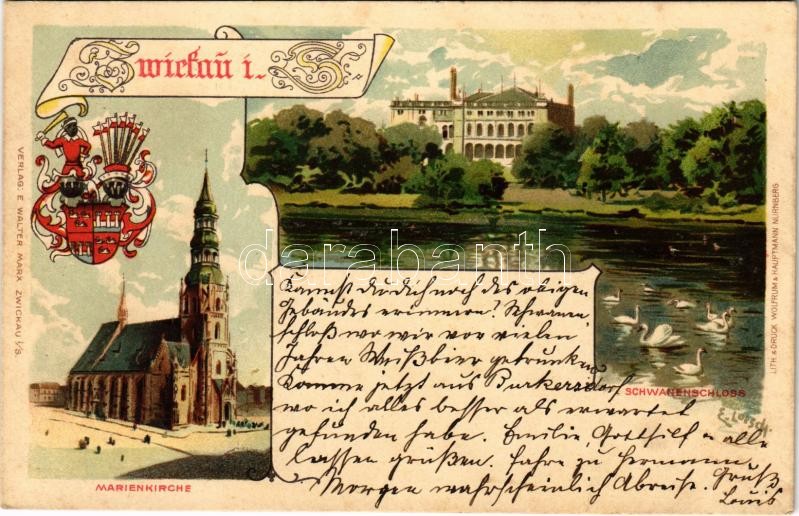 Zwickau i. S.
VERLAG: E. WALTER MARX ZWICKAU i/S.
LITH. & DRUCK WOLFRUM & HAUPTMANN NÜRNBERG
darabanth
.com
Kannst du dich noch des obigen
Gebäudes erinnern? Schwanen
schloß wo wir vor vielen
Jahren Weißbier getrunken
Komme jetzt aus Burkersdorf
SCHWANENSCHLOSS
wo ich alles besser als erwartet
gefunden habe. Emilie, Gotthilf u alle
lassen grüßen. Fahre zu Hermann
Morgen wahrscheinlich Abreise. Gruß
Louis
MARIENKIRCHE